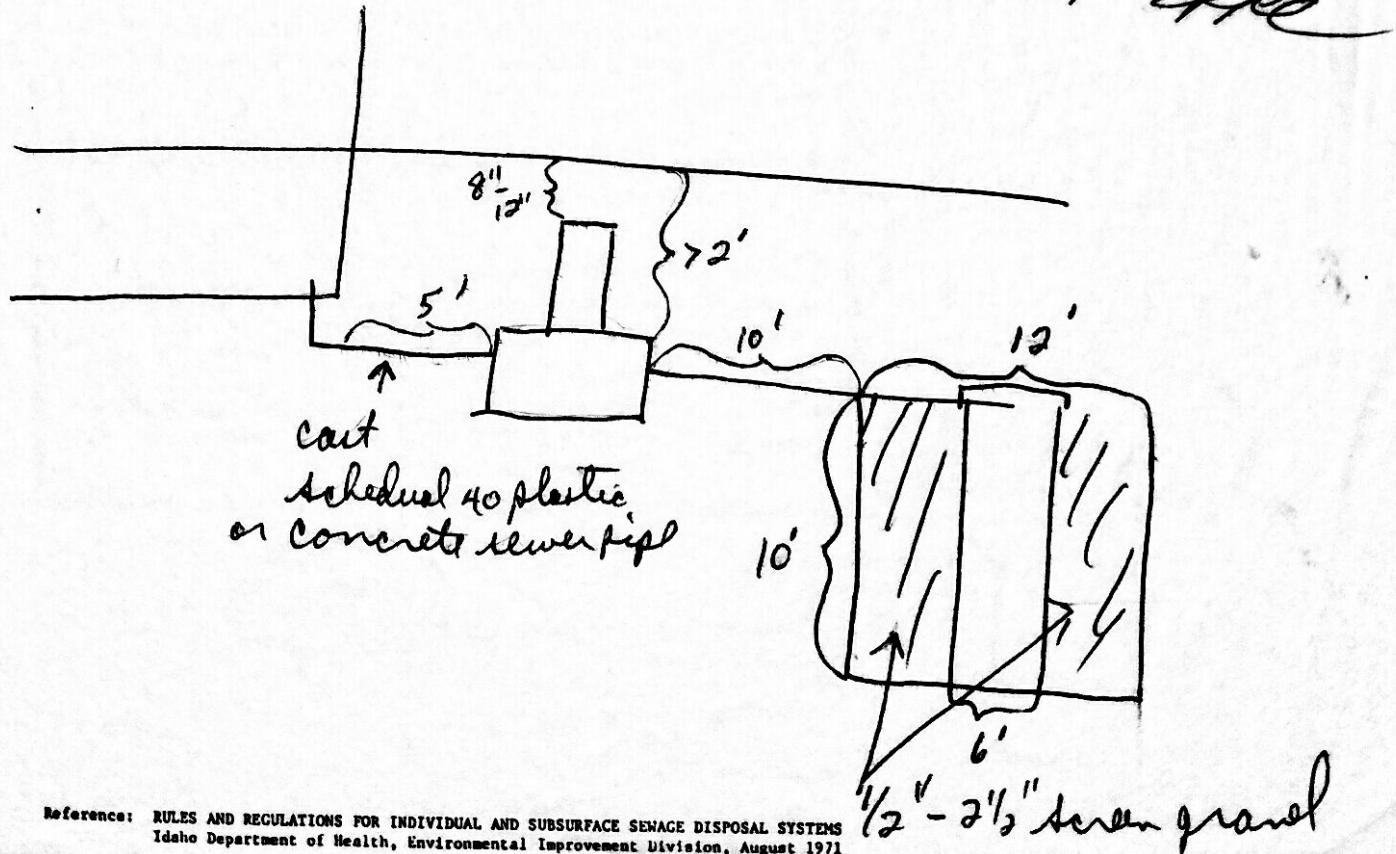 8"-12"
>2'
5'
10'
12'
cast
schedual 40 plastic
or concrete sewer pipe
10'
6'
1/2" - 2 1/2" screen gravel
Reference: RULES AND REGULATIONS FOR INDIVIDUAL AND SUBSURFACE SEWAGE DISPOSAL SYSTEMS
Idaho Department of Health, Environmental Improvement Division, August 1971